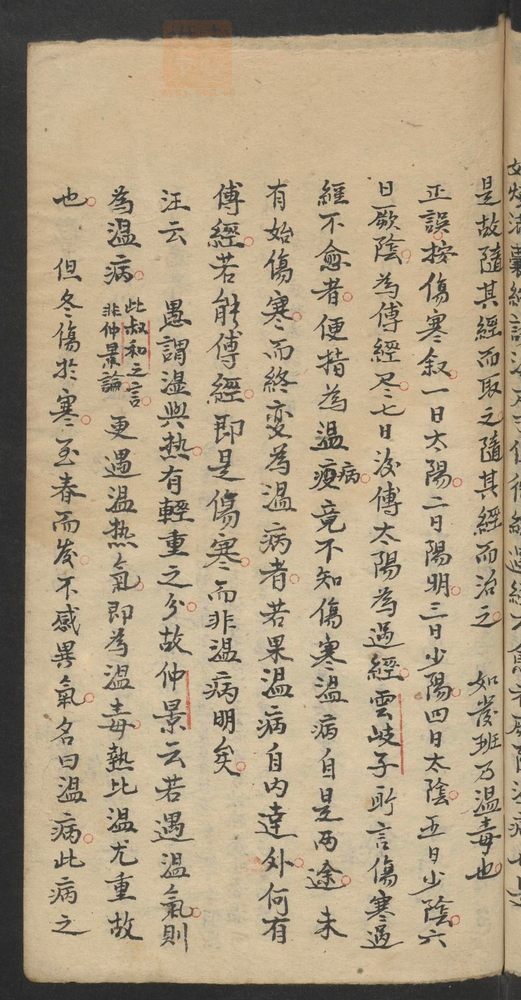 是故隨其經而取之隨其經而治之　如發班乃溫毒也
正誤按傷寒叙一日太陽二日陽明三日少陽四日太陰五日少陰六
日厥陰為傳經尽七日後傳太陽為過經雲岐子所言傷寒過
經不愈者便指為溫病竟不知傷寒溫病自是兩途未
有始傷寒而終变為溫病者若果溫病自内達外何有
傳經若能傳經即是傷寒而非溫病明矣
汪云　愚謂溫與热有輕重之分故仲景云若遇溫氣則
為溫病此叔和之言非仲景論更遇溫热氣即為溫毒熱比溫尤重故
也　但冬傷於寒至春而发不感異氣名曰溫病此病之